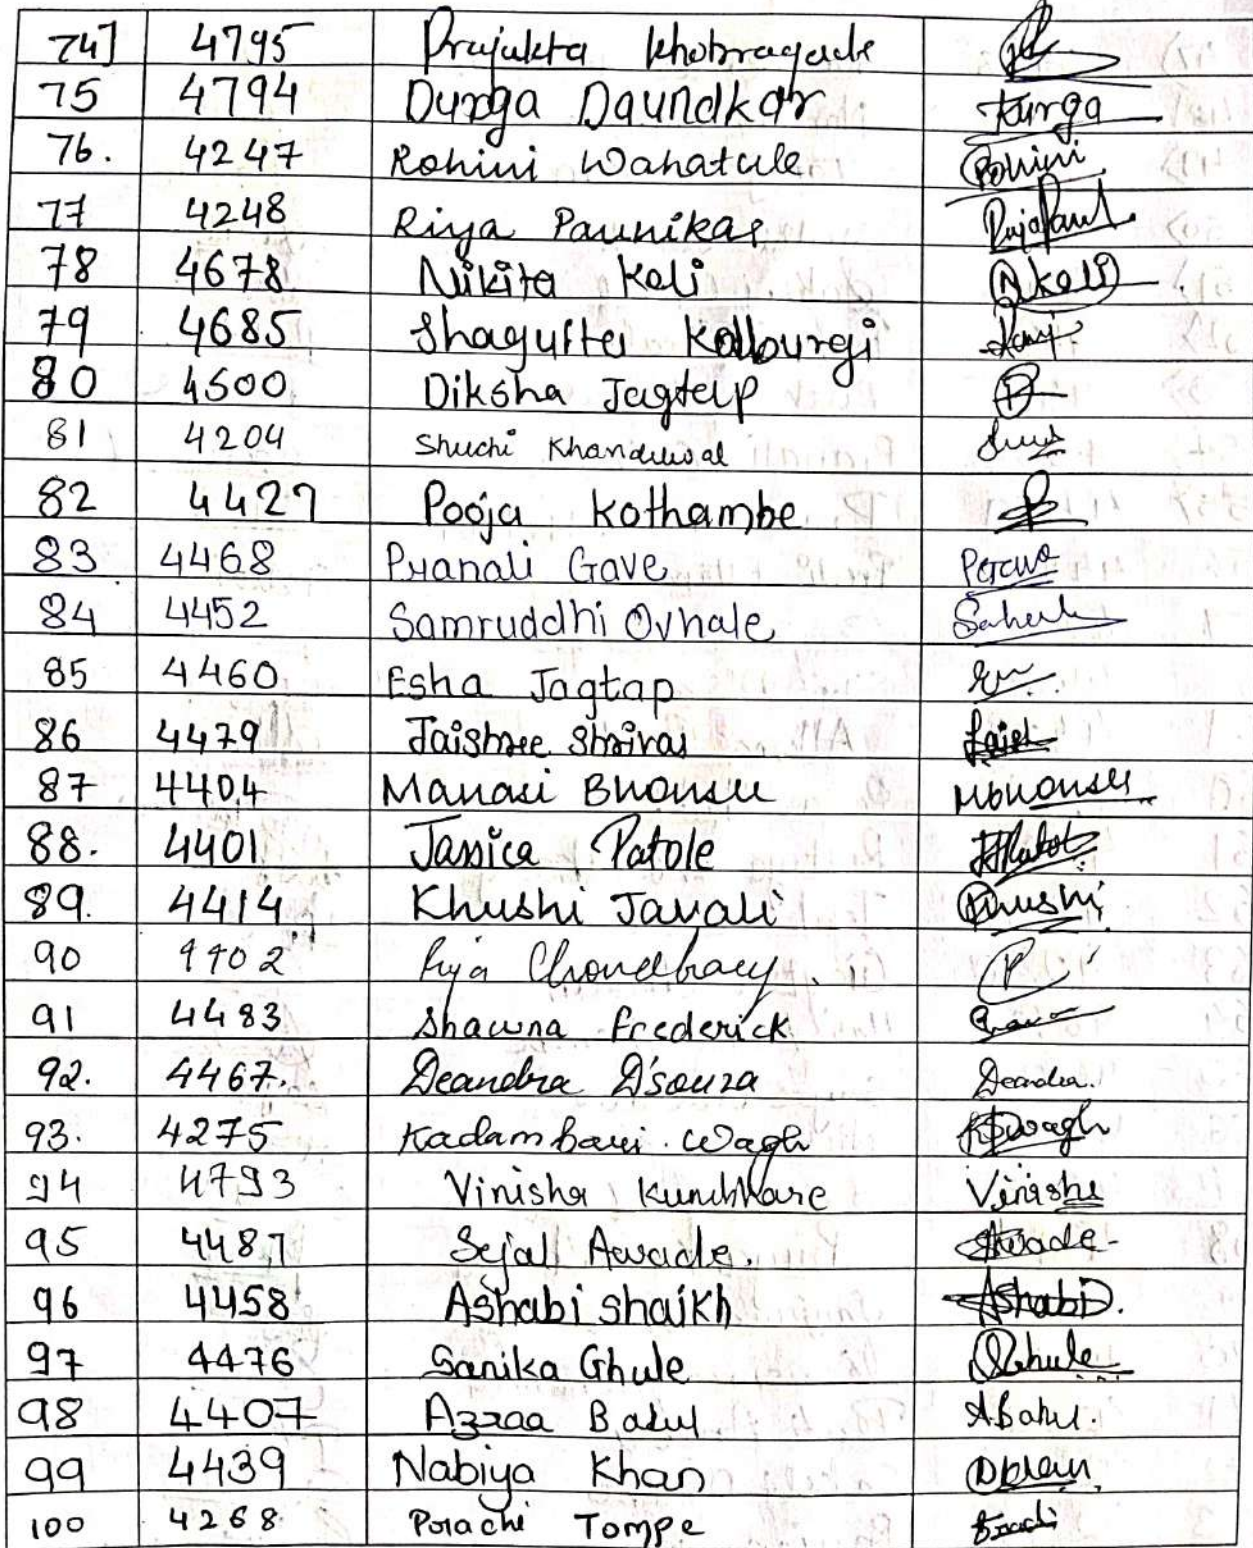 74] 4795 Prajukta Khobragade
75 4794 Durga Daundkar Durga
76. 4247 Rohini Wahatule Rohini
77 4248 Riya Paunikar
78 4678 Nikita Koli NKoli
79 4685 Shagufta Kalburgi
80 4500 Diksha Jagtap
81 4204 Shuchi Khandelwal
82 4427 Pooja Kothambe
83 4468 Pranali Gave
84 4452 Samruddhi Ovhale
85 4460 Esha Jagtap
86 4479 Jaishree Shrivas
87 4404 Manasi Bhonsle MBhonsle
88. 4401 Jassica Patole
89. 4414 Khushi Javali Khushi
90 4402 Riya Choudhary
91 4483 Shawna Frederick
92. 4467. Deandra D'souza Deandra.
93. 4275 Kadambari. Wagh KSWagh
94 4793 Vinisha Kumbhare Vinisha
95 4487 Sejal Awade. SAwade
96 4458 Ashabi Shaikh Ashabi.
97 4476 Sanika Ghule Ghule
98 4407 Azraa Batul A.Batul.
99 4439 Nabiya Khan
100 4268 Prachi Tompe Prachi